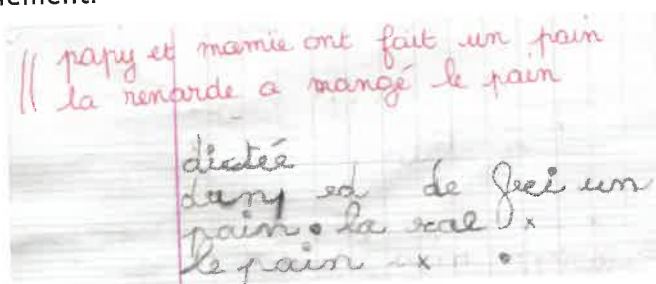 nement.
papy et mamie ont fait un pain
la renarde a mangé le pain
dictée
ed de un
pain. la x
le pain x .